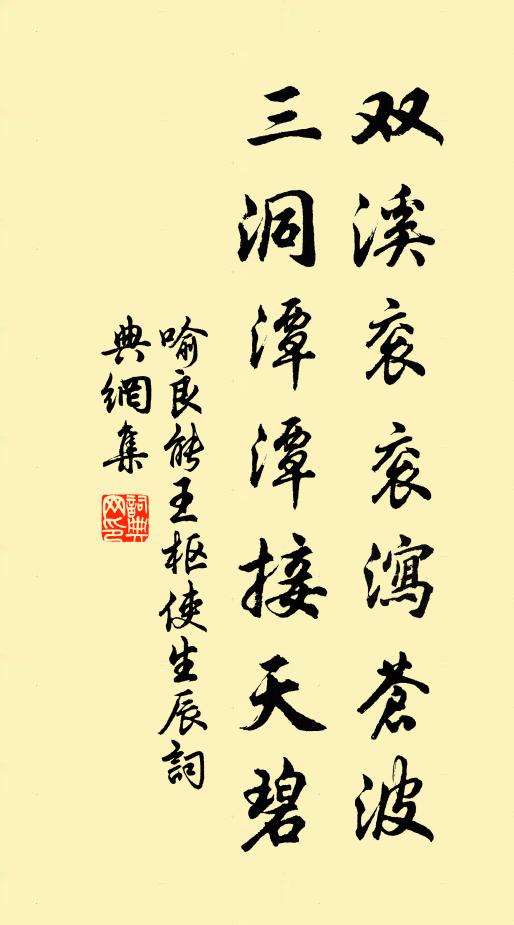 双溪衮衮瀉蒼波
三洞潭潭接天碧
喻良能王枢使生辰詞
典網集
詞典
网印